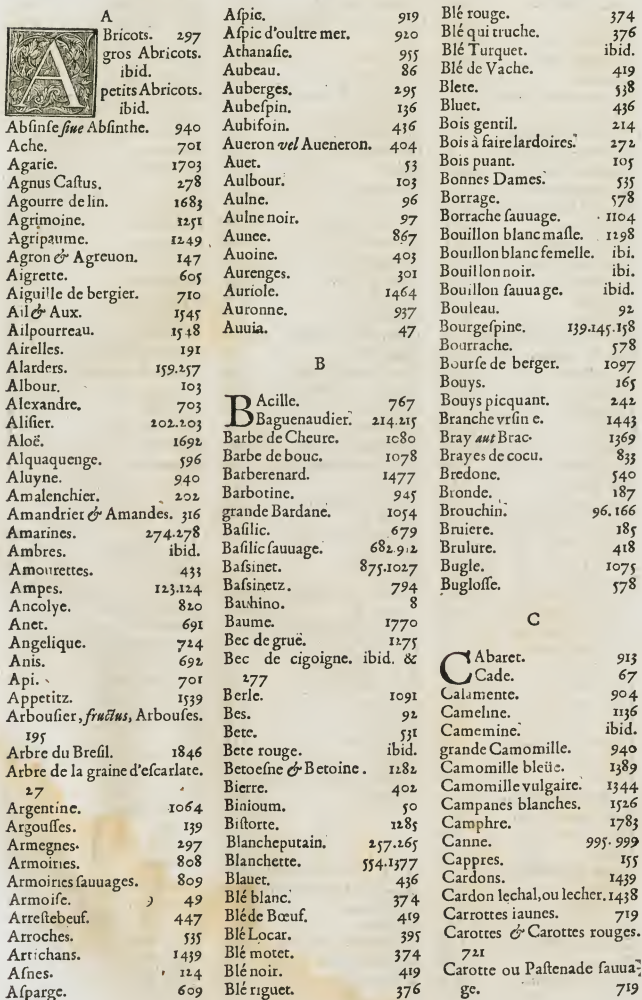 A
ABricots. 297
gros Abricots.
ibid.
petits Abricots.
ibid.
Abſinſe ſiue Abſinthe. 940
Ache. 701
Agarie. 1703
Agnus Caſtus. 278
Agourre de lin. 1683
Agrimoine. 1251
Agripaume. 1249
Agron & Agreuon. 147
Aigrette. 605
Aiguille de bergier. 710
Ail & Aux. 1545
Ailpourreau. 1548
Airelles. 191
Alarders. 159.257
Albour. 103
Alexandre. 703
Aliſier. 202.203
Aloë. 1692
Alquaquenge. 596
Aluyne. 940
Amalenchier. 202
Amandrier & Amandes. 316
Amarines. 274.278
Ambres. ibid.
Amourettes. 433
Ampes. 123.124
Ancolye. 820
Anet. 691
Angelique. 724
Anis. 692
Api. 701
Appetitz. 1539
Arbouſier, fructus, Arbouſes.
195
Arbre du Breſil. 1846
Arbre de la graine d'eſcarlate.
27
Argentine. 1064
Argouſſes. 139
Armegnes. 297
Armoiries. 808
Armoiries ſauuages. 809
Armoiſe. 49
Arreſtebeuf. 447
Arroches. 535
Artichans. 1439
Aſnes. 124
Aſparge. 609
Aſpic. 919
Aſpic d'oultre mer. 920
Athanaſie. 955
Aubeau. 86
Auberges. 295
Aubeſpin. 136
Aubifoin. 436
Aueron vel Aueneron. 404
Auet. 53
Aulbour. 103
Aulne. 96
Aulne noir. 97
Aunee. 867
Auoine. 403
Aurenges. 301
Auriole. 1464
Auronne. 937
Auuia. 47
B
BAcille. 767
Baguenaudier. 214.215
Barbe de Cheure. 1080
Barbe de bouc. 1078
Barberenard. 1477
Barbotine. 945
grande Bardane. 1054
Baſilic. 679
Baſilic ſauuage. 682.912
Baſsinet. 875.1027
Baſsinetz. 794
Bauhino. 8
Baume. 1770
Bec de gruë. 1275
Bec de cigoigne. ibid. &
277
Berle. 1091
Bes. 92
Bete. 531
Bete rouge. ibid.
Betoeſne & Betoine. 1282
Bierre. 402
Binioum. 50
Biſtorte. 1285
Blancheputain. 257.265
Blanchette. 554.1377
Blauet. 436
Blé blanc. 374
Blé de Bœuf. 419
Blé Locar. 395
Blé motet. 374
Blé noir. 419
Blé riguet. 376
Blé rouge. 374
Blé qui truche. 376
Blé Turquet. ibid.
Blé de Vache. 419
Blete. 538
Bluet. 436
Bois gentil. 214
Bois à faire lardoires. 272
Bois puant. 105
Bonnes Dames. 535
Borrage. 578
Borrache ſauuage. 1104
Bouillon blanc maſle. 1298
Bouillon blanc femelle. ibi.
Bouillon noir. ibi.
Bouillon ſauuage. ibid.
Bouleau. 92
Bourgeſpine. 139.145.158
Bourrache. 578
Bourſe de berger. 1097
Bouys. 165
Bouys picquant. 242
Branche vrſin e. 1443
Bray aut Brac. 1369
Brayes de cocu. 833
Bredone. 540
Bronde. 187
Brouchin. 96.166
Bruiere. 185
Brulure. 418
Bugle. 1075
Bugloſſe. 578
C
CAbaret. 913
Cade. 67
Calamente. 904
Cameline. 1136
Camemine. ibid.
grande Camomille. 940
Camomille bleüe. 1389
Camomille vulgaire. 1344
Campanes blanches. 1526
Camphre. 1783
Canne. 995.999
Cappres. 155
Cardons. 1439
Cardon lechal, ou lecher. 1438
Carrottes iaunes. 719
Carottes & Carottes rouges.
721
Carotte ou Paſtenade ſauua-
ge. 719